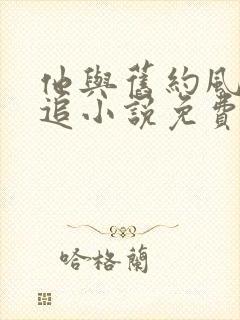 他與舊約風
追小說免費
哈格蘭